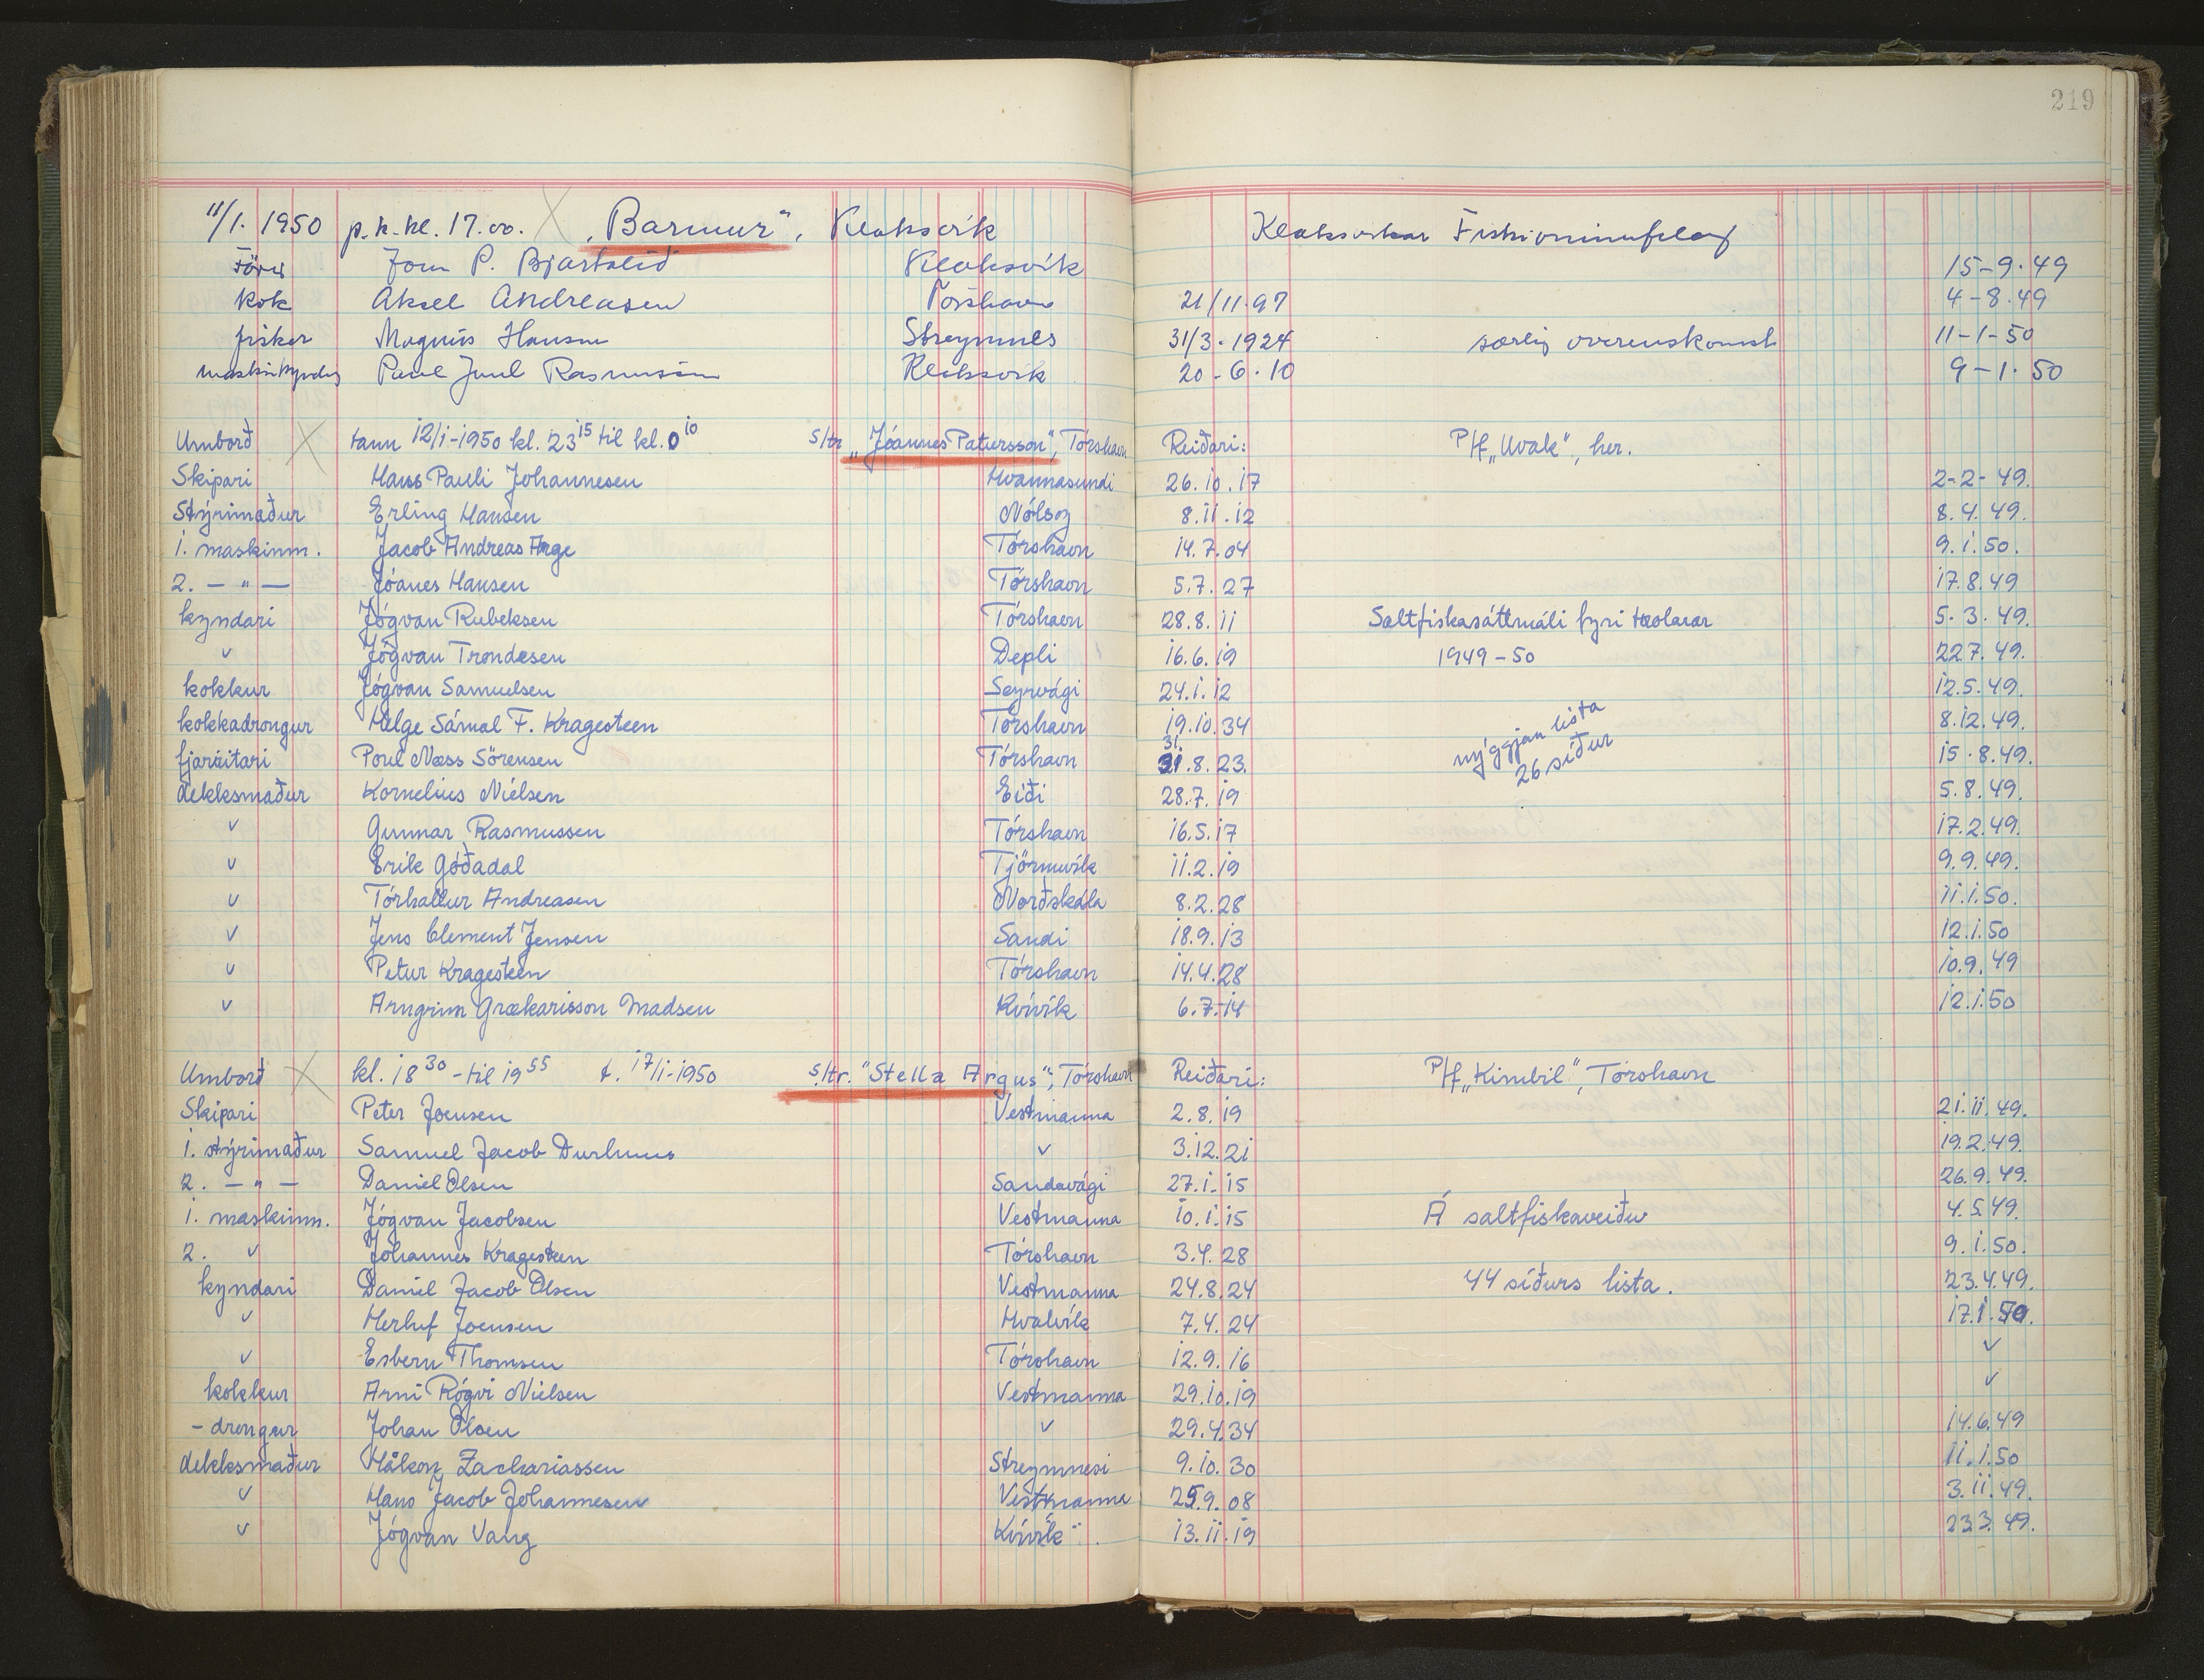 219
11/1. 1950 p.k. kl. 17.00. X "Barmur", Klaksvík Klaksvíkar
Förer P. Bjartalíð Klaksvík 15-9.49
Kok Aksel Andreasen Tórshavn 21/11.97 4-8.49
fisker Magnús Hansen Streymnes 31/3.1924 særlig overenskomst 11-1-50
Poul Juul Rasmussen Klaksvik 20-6.10 9-1.50
Umborð X tann 12/1-1950 kl. 23 15 til kl. 0 10 s/tr „Jóannes Patursson", Tórshavn Reiðari: P/f „Uvak", her.
Skipari Hans Pauli Johannesen Hvannasundi 26.10.17 2-2-49.
Stýrimaður Erling Hansen Nólsoy 8.11.12 8.4.49.
1. maskinm. Jacob Andreas Arge Tórshavn 14.7.04 9.1.50.
2. — " — Jóanes Hansen Tórshavn 5.7.27 17.8.49
kyndari Jógvan Rubeksen Tórshavn 28.8.11 Saltfiskasáttmáli fyri trolarar 5.3.49.
v Jógvan Trondesen Depli 16.6.19 1949-50 22.7.49.
kokkur Jógvan Samuelsen Sørvági 24.1.12 12.5.49.
kokkadrongur Helge Sámal F. Kragesteen Tórshavn 19.10.34 nýggjan lista 8.12.49.
Poul Næss Sörensen Tórshavn 31. 31.8.23. 26 síður 15.8.49.
dekksmaður Kornelius Nielsen Eiði 28.7.19 5.8.49.
v Gunnar Rasmussen Tórshavn 16.5.17 17.2.49.
v Erik Góðadal Tjörnuvík 11.2.19 9.9.49.
v Tórhallur Andreasen Norðskála 8.2.28 11.1.50.
v Jens Clement Jensen Sandi 18.9.13 12.1.50
v Petur Kragesteen Tórshavn 14.4.28 10.9.49
v Arngrim Grækarisson Madsen Kvívík 6.7.14 12.1.50
Umborð X kl. 18 30 - til 19 55 t. 17/1-1950 s/tr. "Stella Argus", Tórshavn Reiðari: P/f „Kimbil", Tórshavn
Skipari Peter Joensen Vestmanna 2.8.19 21.11.49.
1. stýrimaður Samuel Jacob Durhuus v 3.12.21 19.2.49.
2. — " — Daniel Olsen Sandavági 27.1.15 26.9.49.
1. maskinm. Jógvan Jacobsen Vestmanna 10.1.15 Á saltfiskaveiðu 4.5.49.
2. v Johannes Kragesteen Tórshavn 3.4.28 9.1.50.
kyndari Daniel Jacob Olsen Vestmanna 24.8.24 44 síðurs lista. 23.4.49.
v Herluf Joensen Hvalvík 7.4.24 17.1.50.
v Esbern Thomsen Tórshavn 12.9.16 v
kokkur Arni Rógvi Nielsen Vestmanna 29.10.19 v
- drongur Johan Olsen v 29.4.34 14.6.49
dekksmaður Håkon Zachariassen Streymnesi 9.10.30 11.1.50
v Hans Jacob Johannesen Vestmanna 25.9.08 3.11.49.
v Jógvan Vang Kvívík 13.11.19 23.3.49.